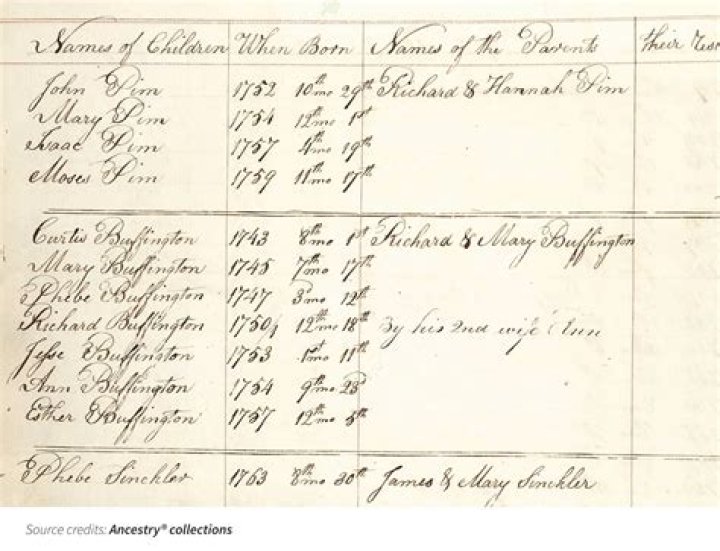 Names of Children When Born Names of the Parents their
John Pim 1752 10th mo 29th Richard & Hannah Pim
Mary Pim 1754 12th mo 1st
Isaac Pim 1757 4th mo 19th
Moses Pim 1759 11th mo 17th
Curtis Buffington 1743 8th mo 1st Richard & Mary Buffington
Mary Buffington 1745 7th mo 17th
Phebe Buffington 1747 3d mo 12th
Richard Buffington 1750/1 12th mo 18th By his 2nd wife Ann
Jesse Buffington 1753 1st mo 11th
Ann Buffington 1754 9th mo 23d
Esther Buffington 1757 12th mo 5th
Phebe Sinckler 1763 8th mo 30th James & Mary Sinckler
Source credits: Ancestry® collections